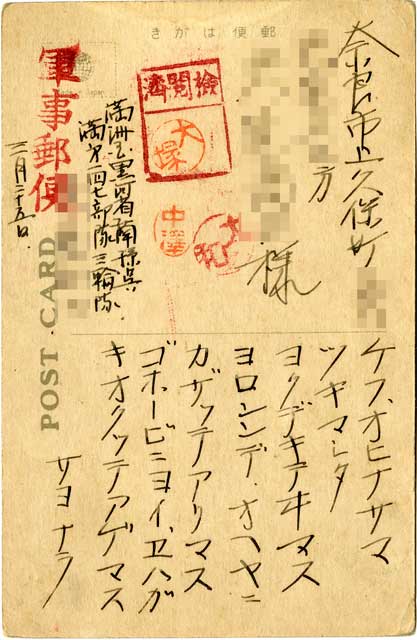 郵便はがき
奈良市上久保町
方
様
軍事郵便
檢閲濟
大塚
中澤
満洲国黒河省南孫呉
部隊三輪隊
三月二十五日
POST CARD
ケフ、オヒナサマ
ツキマシタ
ヨクデキテヰマス
ヨロコンデ、オヘヤニ
カザッテアリマス
ゴホービニヨイ、ヱハガ
キオクッテアゲマス
サヨナラ